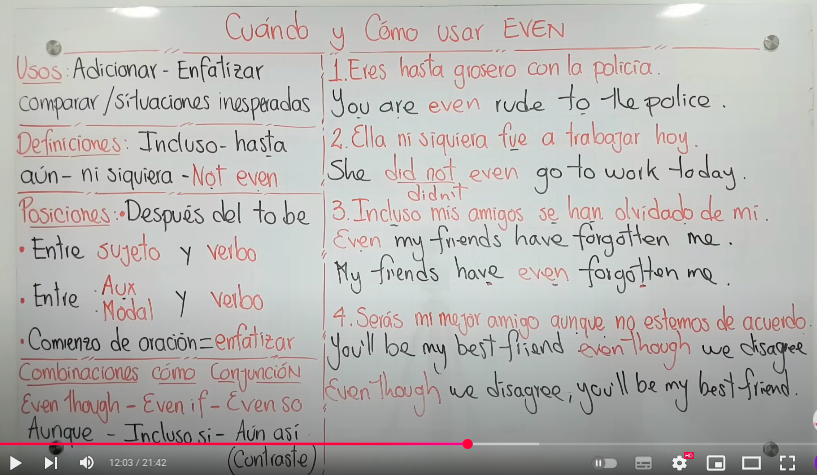 Cuándo y Cómo usar EVEN
Usos: Adicionar - Enfatizar
comparar / situaciones inesperadas
Definiciones: Incluso - hasta
aún - ni siquiera - Not even
Posiciones: • Después del to be
• Entre sujeto y verbo
• Entre • Aux y verbo
• Modal
• Comienzo de oración = enfatizar
Combinaciones cómo Conjunción
Even though - Even if - Even so
Aunque - Incluso si - Aún así
(Contraste)
1. Eres hasta grosero con la policia.
You are even rude to the police.
2. Ella ni siquiera fue a trabajar hoy.
She did not even go to work today.
didn't
3. Incluso mis amigos se han olvidado de mi.
Even my friends have forgotten me.
My friends have even forgotten me.
4. Serás mi mejor amigo aunque no estemos de acuerdo.
You'll be my best friend even though we disagree
Even though we disagree, you'll be my best friend.
12:03 / 21:42
HD